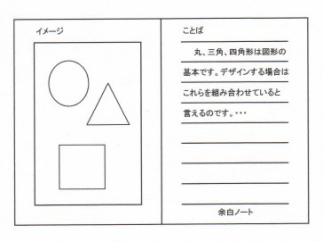 イメージ
ことば
丸、三角、四角形は図形の
基本です。デザインする場合は
これらを組み合わせていると
言えるのです。・・・
余白ノート